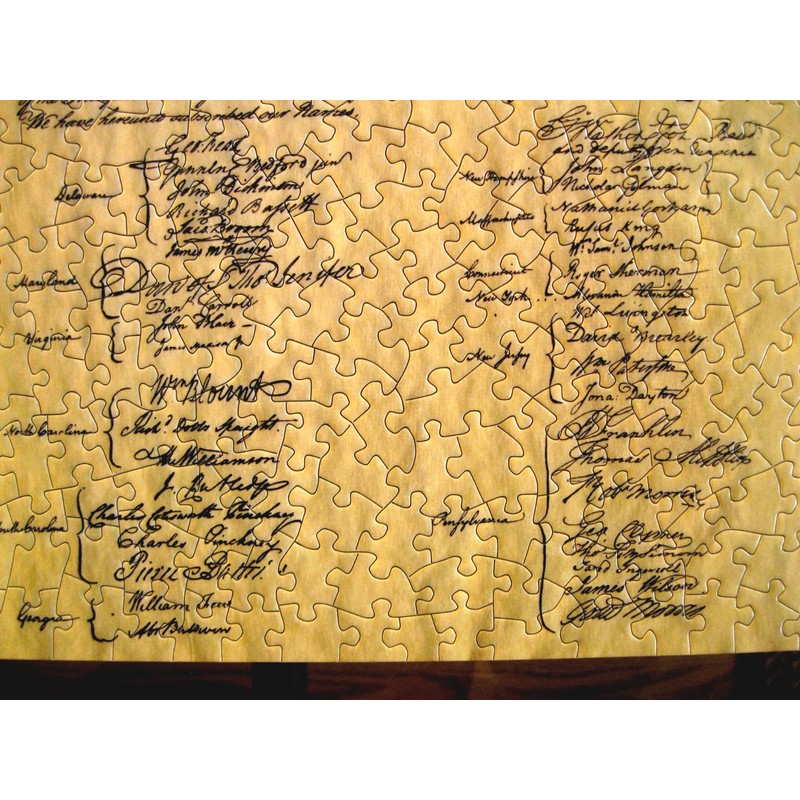 We have hereunto subscribed our Names,
Delaware
Geo: Read
Gunning Bedford jun
John Dickinson
Richard Bassett
Jaco: Broom
James McHenry
Maryland
Dan of St Tho Jenifer
Danl Carroll
Virginia
John Blair —
James Madison Jr
North Carolina
Wm Blount
Richd Dobbs Spaight.
Hu Williamson
South Carolina
J. Rutledge
Charles Cotesworth Pinckney
Charles Pinckney
Pierce Butler.
Georgia
William Few
Abr Baldwin
Go Washington Presidt
and deputy from Virginia
New Hampshire
John Langdon
Nicholas Gilman
Massachusetts
Nathaniel Gorham
Rufus King
Connecticut
Wm Saml Johnson
Roger Sherman
New York...
Alexander Hamilton
New Jersey
Wil: Livingston
David Brearley.
Wm Paterson.
Jona: Dayton
Pensylvania
B Franklin
Thomas Mifflin
Robt Morris
Geo. Clymer
Thos FitzSimons
Jared Ingersoll
James Wilson
Gouv Morris